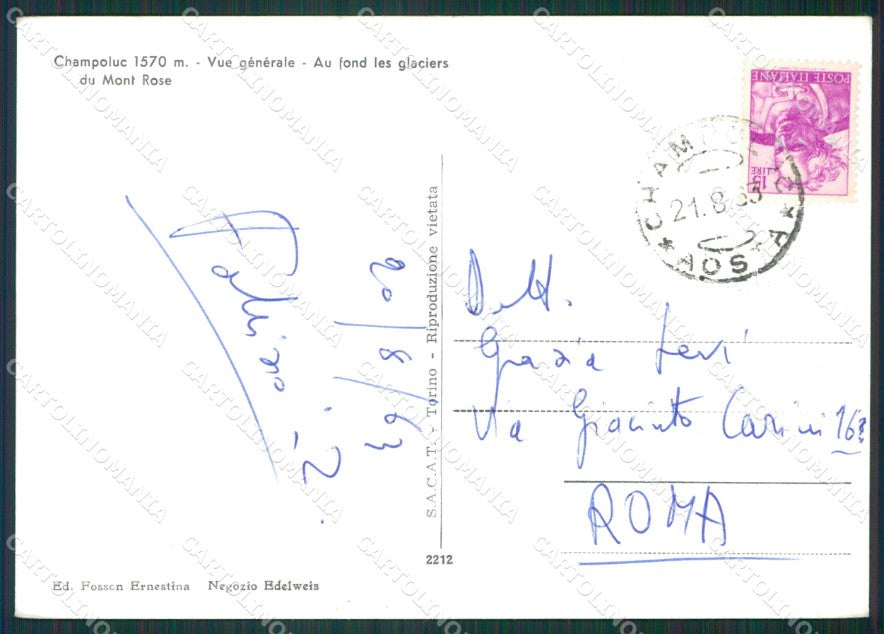 Champoluc 1570 m. - Vue générale - Au fond les glaciers
du Mont Rose
POSTE ITALIANE
LIRE 15
CHAMPOLUC
21.8.63
* AOSTA *
20/8/63
S.A.C.A.T. - Torino - Riproduzione vietata
Dott.
Grazia Levi
Via Giacinto Carini
ROMA
2212
Ed. Fosson Ernestina Negozio Edelweis
CARTOLINOMANIA